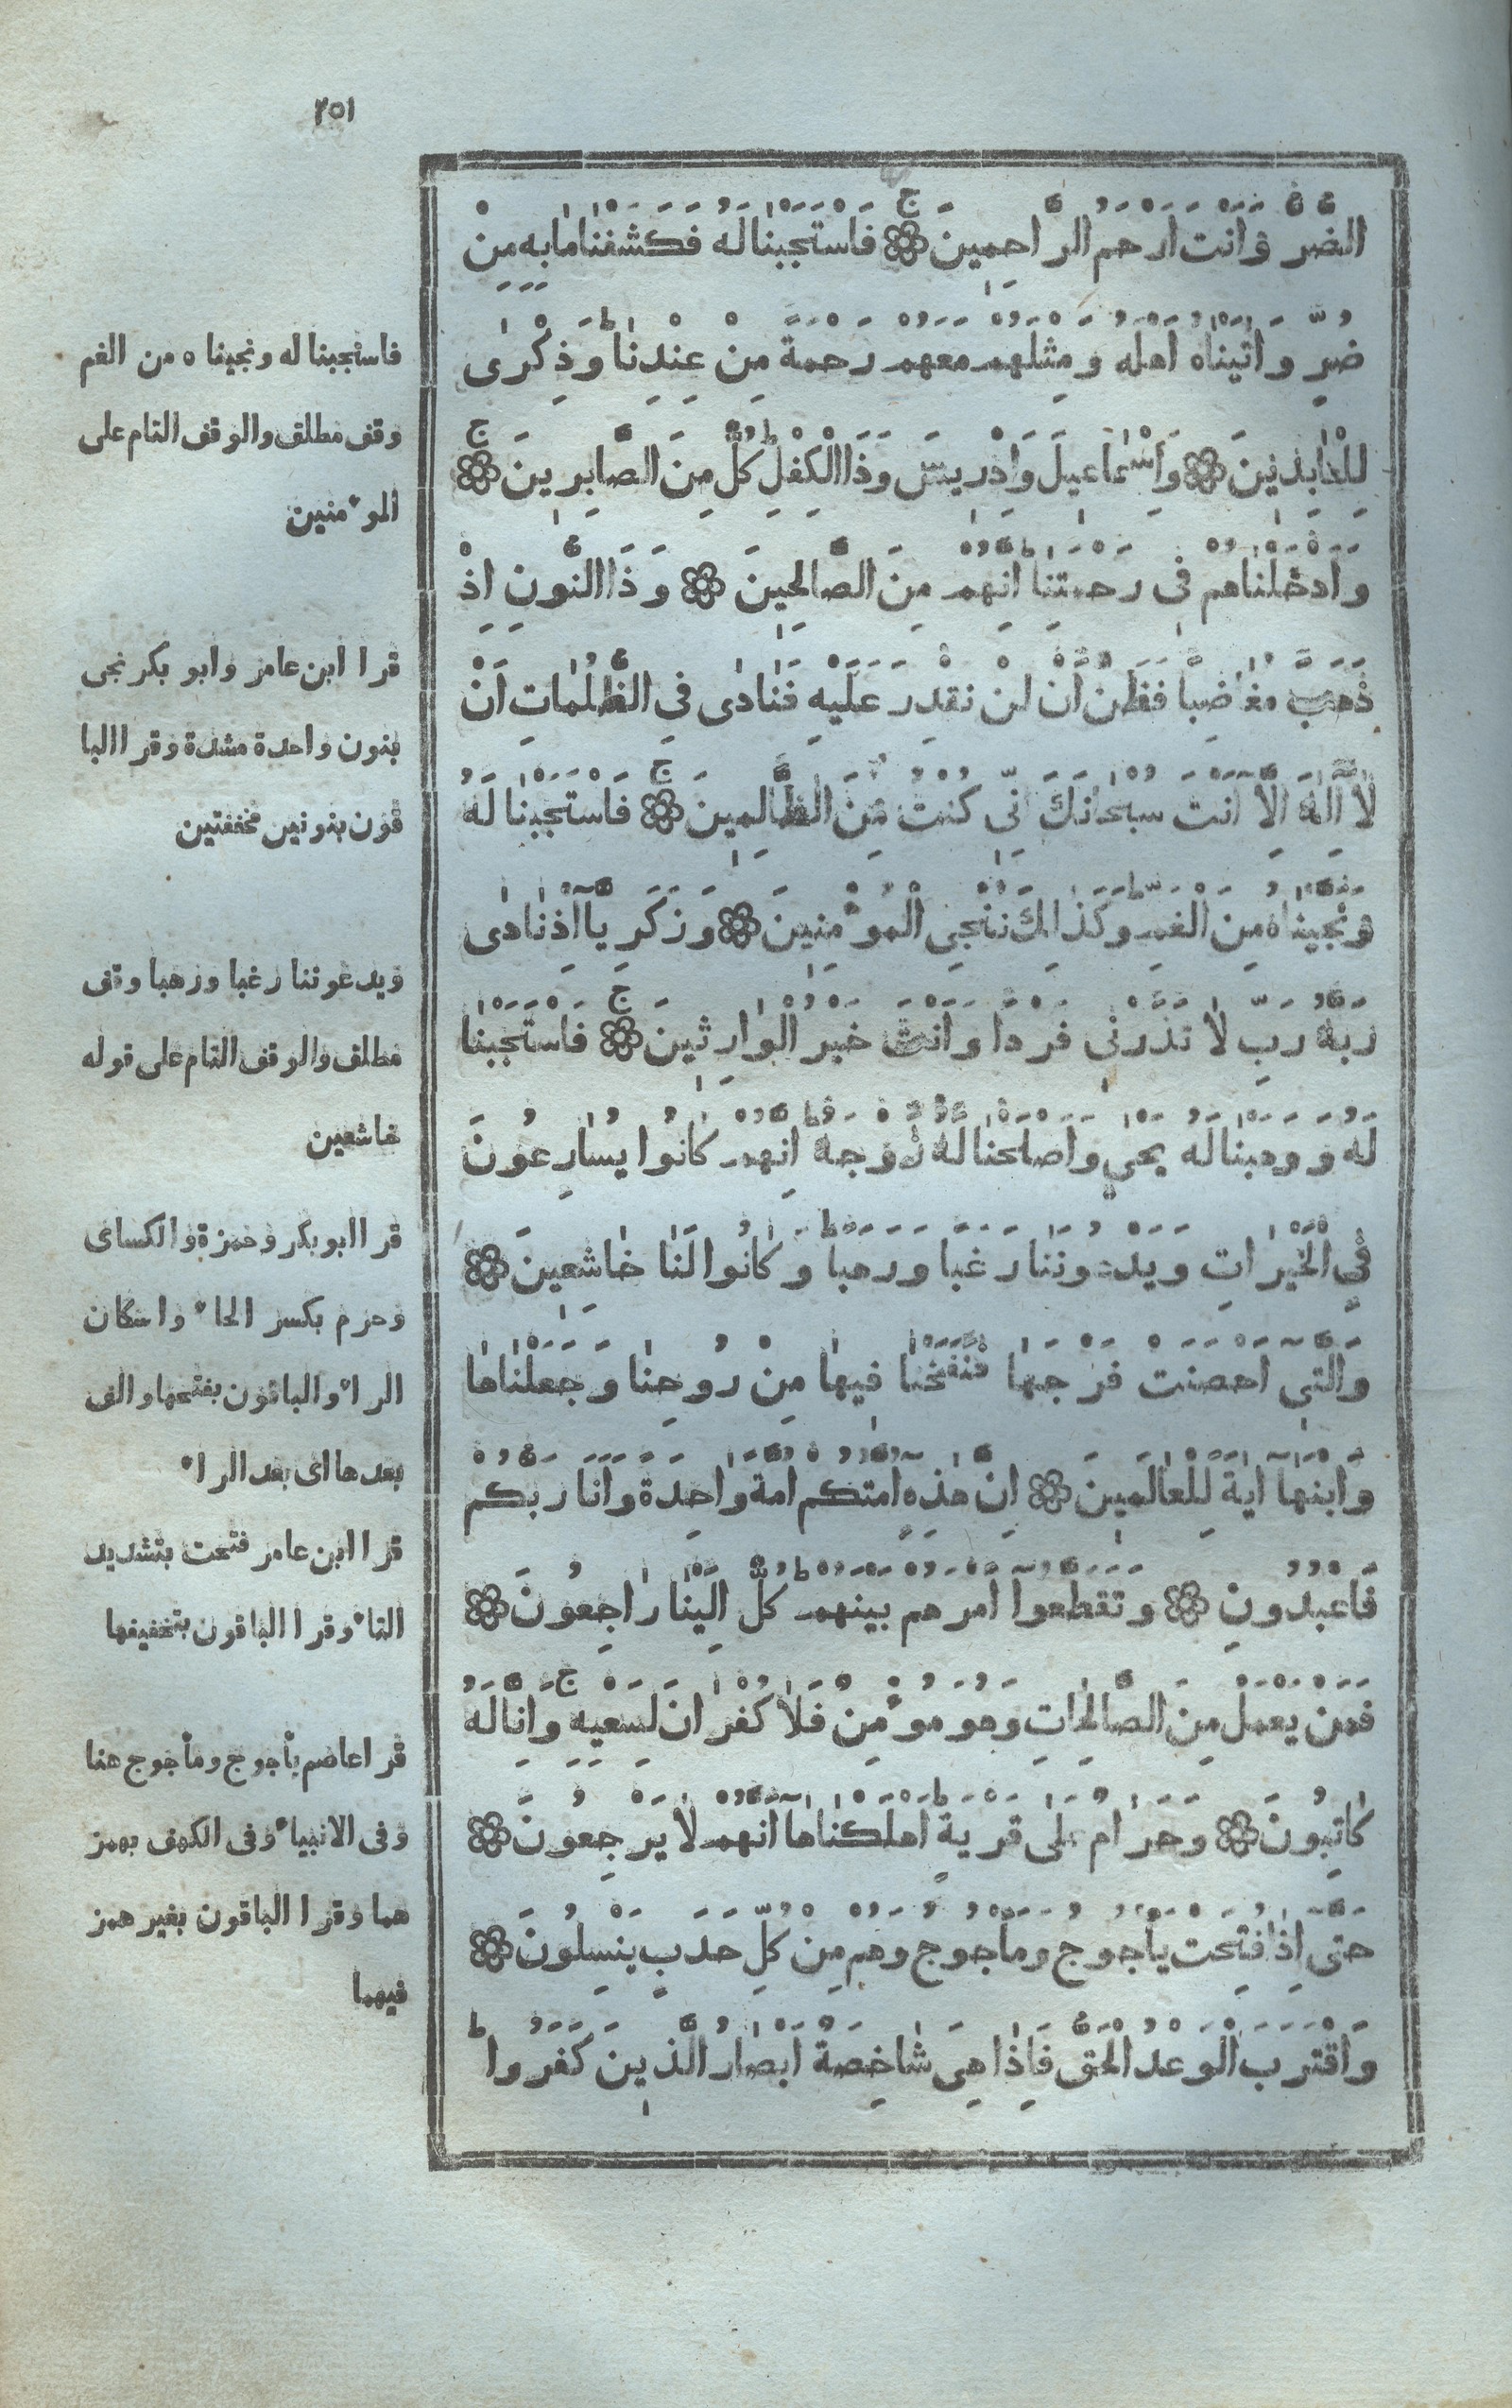 ٢٥١
الضُّرُّ وَاَنْتَ اَرْحَمُ الرَّاحِمِينَ ۞ ج فَاسْتَجَبْنَا لَهُ فَكَشَفْنَا مَا بِهِ مِنْ
ضُرٍّ وَاٰتَيْنَاهُ اَهْلَهُ وَمِثْلَهُمْ مَعَهُمْ رَحْمَةً مِنْ عِنْدِنَا ط وَذِكْرٰى
لِلْعَابِدِينَ ۞ وَاِسْمَاعِيلَ وَاِدْرِيسَ وَذَا الْكِفْلِ ط كُلٌّ مِنَ الصَّابِرِينَ ۞ ج
وَاَدْخَلْنَاهُمْ فِى رَحْمَتِنَا ط اِنَّهُمْ مِنَ الصَّالِحِينَ ۞ وَذَا النُّونِ اِذْ
ذَهَبَ مُغَاضِبًا فَظَنَّ اَنْ لَنْ نَقْدِرَ عَلَيْهِ فَنَادٰى فِى الظُّلُمَاتِ اَنْ
لَا اِلٰهَ اِلَّا اَنْتَ سُبْحَانَكَ اِنِّى كُنْتُ مِنَ الظَّالِمِينَ ۞ ج فَاسْتَجَبْنَا لَهُ
وَنَجَّيْنَاهُ مِنَ الْغَمِّ ط وَكَذَالِكَ نُنْجِى الْمُوْٴمِنِينَ ۞ وَزَكَرِيَّا اِذْ نَادٰى
رَبَّهُ رَبِّ لَا تَذَرْنِى فَرْدًا وَاَنْتَ خَيْرُ الْوَارِثِينَ ۞ ج فَاسْتَجَبْنَا
لَهُ وَوَهَبْنَا لَهُ يَحْيٰى وَاَصْلَحْنَا لَهُ زَوْجَهُ ط اِنَّهُمْ كَانُوا يُسَارِعُونَ
فِى الْخَيْرَاتِ وَيَدْعُونَنَا رَغَبًا وَرَهَبًا ط وَكَانُوا لَنَا خَاشِعِينَ ۞
وَالَّتِى اَحْصَنَتْ فَرْجَهَا فَنَفَخْنَا فِيهَا مِنْ رُوحِنَا وَجَعَلْنَاهَا
وَابْنَهَا اٰيَةً لِلْعَالَمِينَ ۞ اِنَّ هٰذِهِ اُمَّتُكُمْ اُمَّةً وَاحِدَةً وَاَنَا رَبُّكُمْ
فَاعْبُدُونِ ۞ وَتَقَطَّعُوا اَمْرَهُمْ بَيْنَهُمْ ط كُلٌّ اِلَيْنَا رَاجِعُونَ ۞
فَمَنْ يَعْمَلْ مِنَ الصَّالِحَاتِ وَهُوَ مُوْٴمِنٌ فَلَا كُفْرَانَ لِسَعْيِهِ ج وَاِنَّا لَهُ
كَاتِبُونَ ۞ وَحَرَامٌ عَلٰى قَرْيَةٍ ط اَهْلَكْنَاهَا اَنَّهُمْ لَا يَرْجِعُونَ ۞
حَتّٰى اِذَا فُتِحَتْ يَأْجُوجُ وَمَأْجُوجُ وَهُمْ مِنْ كُلِّ حَدَبٍ يَنْسِلُونَ ۞
وَاقْتَرَبَ الْوَعْدُ الْحَقُّ فَاِذَا هِىَ شَاخِصَةٌ اَبْصَارُ الَّذِينَ كَفَرُوا ط
فاستجبنا له ونجيناه من الغم
وقف مطلق والوقف التام على
الموٴمنين
قرا ابن عامر وابو بكر نجى
بنون واحدة مشدة وقرا البا
قون بنونين مخففتين
ويدعوننا رغبا ورهبا وقف
مطلق والوقف التام على قوله
خاشعين
قرا ابو بكر وحمزة والكساى
وحرم بكسر الحاء واسكان
الراء والباقون بفتحها والف
بعدها اى بعد الراء
قرا ابن عامر فتحت بتشديد
التاء وقرا الباقون بتخفيفها
قرا عاصم يأجوج ومأجوج هنا
وفى الانبياء وفى الكهف بهمز
هما وقرا الباقون بغير همز
فيهما